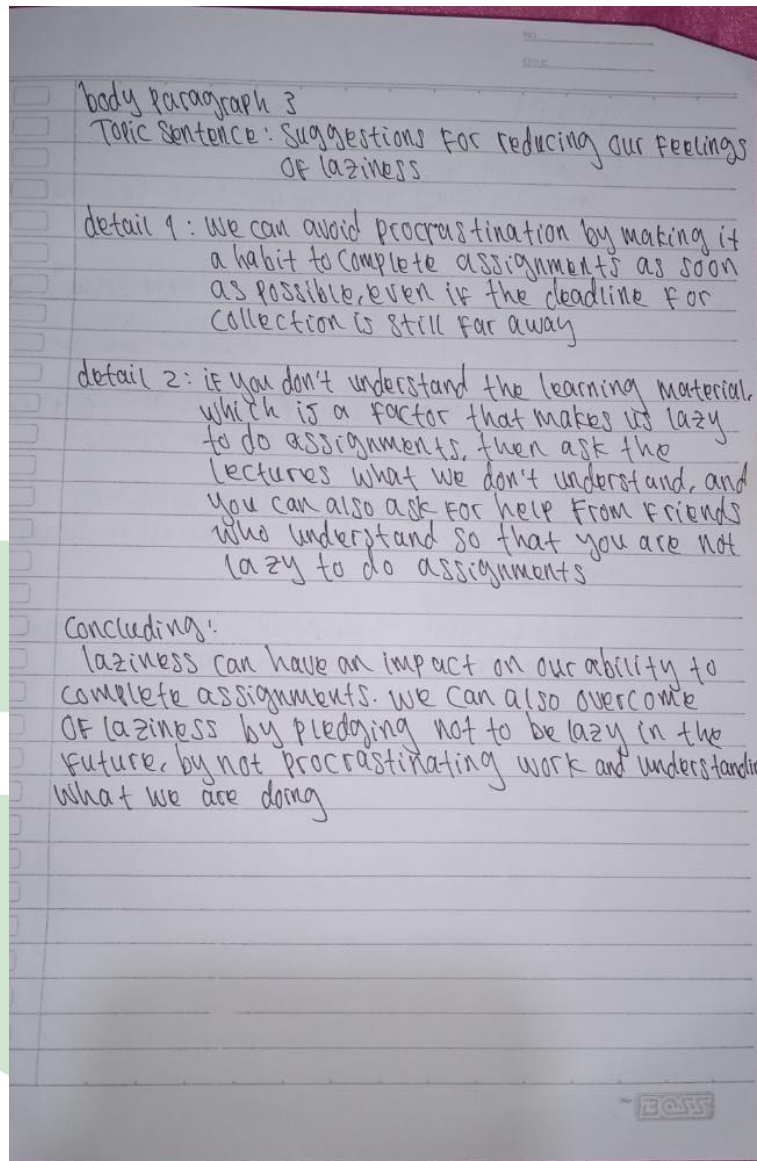 No.
Date
body paragraph 3
Topic Sentence : Suggestions for reducing our feelings
of laziness
detail 1 : we can avoid procrastination by making it
a habit to complete assignments as soon
as possible, even if the deadline for
collection is still far away
detail 2 : if you don't understand the learning material,
which is a factor that makes us lazy
to do assignments, then ask the
lectures what we don't understand, and
you can also ask for help from friends
who understand so that you are not
lazy to do assignments
Concluding :
laziness can have an impact on our ability to
complete assignments. we can also overcome
of laziness by pledging not to be lazy in the
future, by not procrastinating work and understandin
what we are doing
BOSS